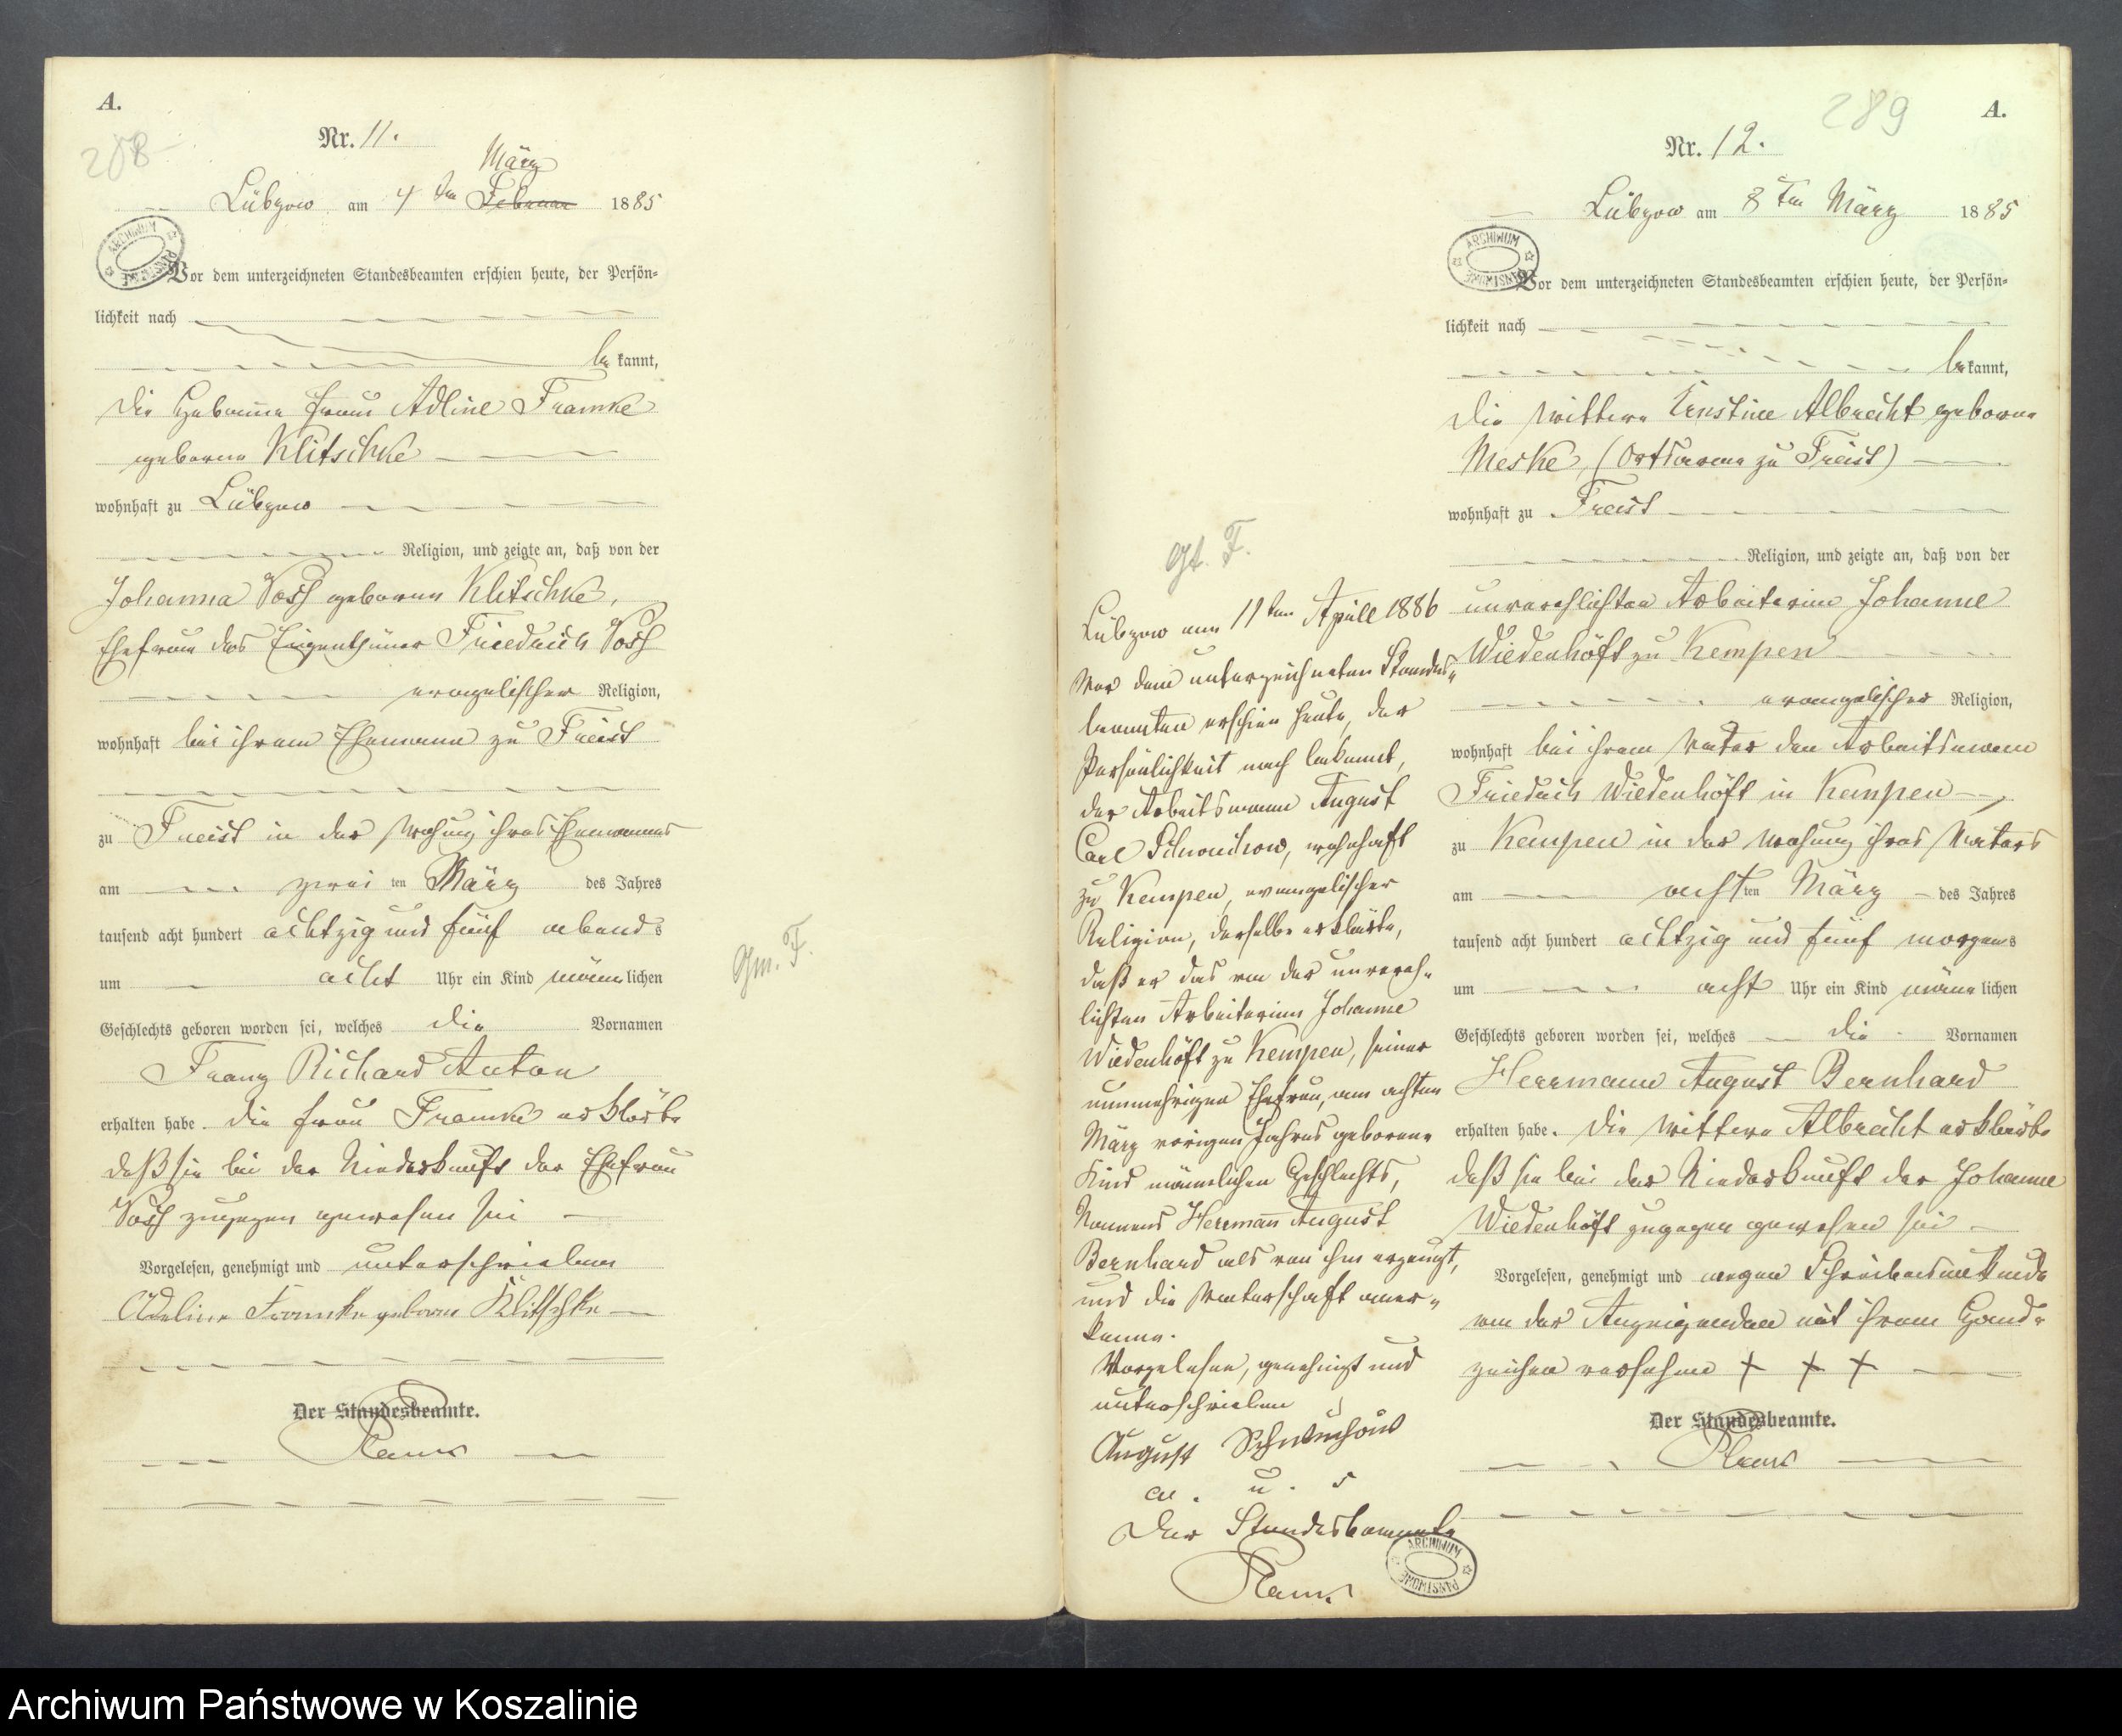 A.
208
Nr. 11.
März
Lübzow am 4 ten Februar 1885
ARCHIWUM PAŃSTWOWE
Vor dem unterzeichneten Standesbeamten erschien heute, der Persön-
lichkeit nach
be kannt,
die Hebamme Frau Adline Framke
geborne Klitschke
wohnhaft zu Lübzow
Religion, und zeigte an, daß von der
Johanna Voß geborne Klitschke,
Ehefrau des Eigenthümer Friedrich Voß
evangelischer Religion,
wohnhaft bei ihrem Ehemann zu Freist
zu Freist in der Wohnung ihres Ehemannes
am zwei ten März des Jahres
tausend acht hundert achtzig und fünf abends
um acht Uhr ein Kind männlichen
Geschlechts geboren worden sei, welches die Vornamen
Franz Richard Anton
erhalten habe. die Frau Framke erklärte
daß sie bei der Niederkunft der Ehefrau
Voß zugegen gewesen sei
Vorgelesen, genehmigt und unterschrieben
Adeline Framke geborne Klitschke
Der Standesbeamte.
Gm. F.
289
A.
Nr. 12.
Lübzow am 8 ten März 1885
ARCHIWUM PAŃSTWOWE
Vor dem unterzeichneten Standesbeamten erschien heute, der Persön-
lichkeit nach
be kannt,
die Wittwe Ernstine Albrecht geborne
Meske, (Ortsarme zu Freist)
wohnhaft zu Freist
Religion, und zeigte an, daß von der
unverehlichten Arbeiterin Johanne
Wiedenhöft zu Kempen
evangelischer Religion,
wohnhaft bei ihrem Vater den Arbeitsmann
Friedrich Wiedenhöft in Kempen
zu Kempen in der Wohnung ihres Vaters
am achten März des Jahres
tausend acht hundert achtzig und fünf morgens
um acht Uhr ein Kind männlichen
Geschlechts geboren worden sei, welches die Vornamen
Herrmann August Bernhard
erhalten habe. Die Wittwe Albrecht erklärte
daß sie bei der Niederkunft der Johanne
Wiedenhöft zugegen gewesen sei
Vorgelesen, genehmigt und wegen Schreibensunkunde
von der Anzeigenden mit ihrem Hand-
zeichen versehen + + +
Der Standesbeamte.
Gt. F.
Lübzow am 11ten Aprill 1886
Vor dem unterzeichneten Standes-
beamten erschien heute, der
Persönlichkeit nach bekannt,
der Arbeitsmann August
Carl Schwuchow, wohnhaft
zu Kempen, evangelischer
Religion, derselbe erklärte,
daß er das von der unvereh-
lichten Arbeiterin Johanne
Wiedenhöft zu Kempen, seiner
nunmehrigen Ehefrau, am achten
März vorigen Jahres geborene
Kind männlichen Geschlechts,
Namens Herrmann August
Bernhard als von ihm erzeugt,
und die Vaterschaft aner-
kenne.
Vorgelesen, genehmigt und
unterschrieben
August Schwuchow
a. u. s
Der Standesbeamte
ARCHIWUM PAŃSTWOWE
Archiwum Państwowe w Koszalinie